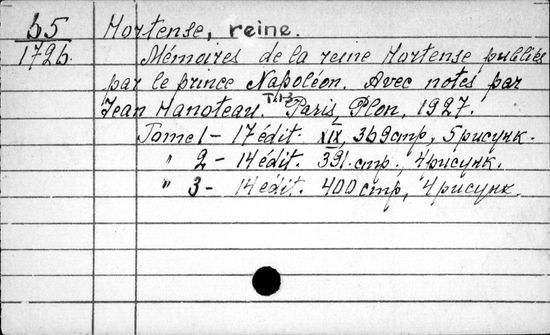 b5
1726.
Hortense, reine.
Mémoires de la reine Hortense publiés
par le prince Napoléon. Avec notes par
Jean Hanoteau. T.1-3 Paris, Plon, 1927.
Tome 1 - 17 édit. XIX, 369 стр, 5 рисунк.
" 2 - 14 édit. 391 стр, 4 рисунк.
" 3 - 14 édit. 400 стр, 4 рисунк.